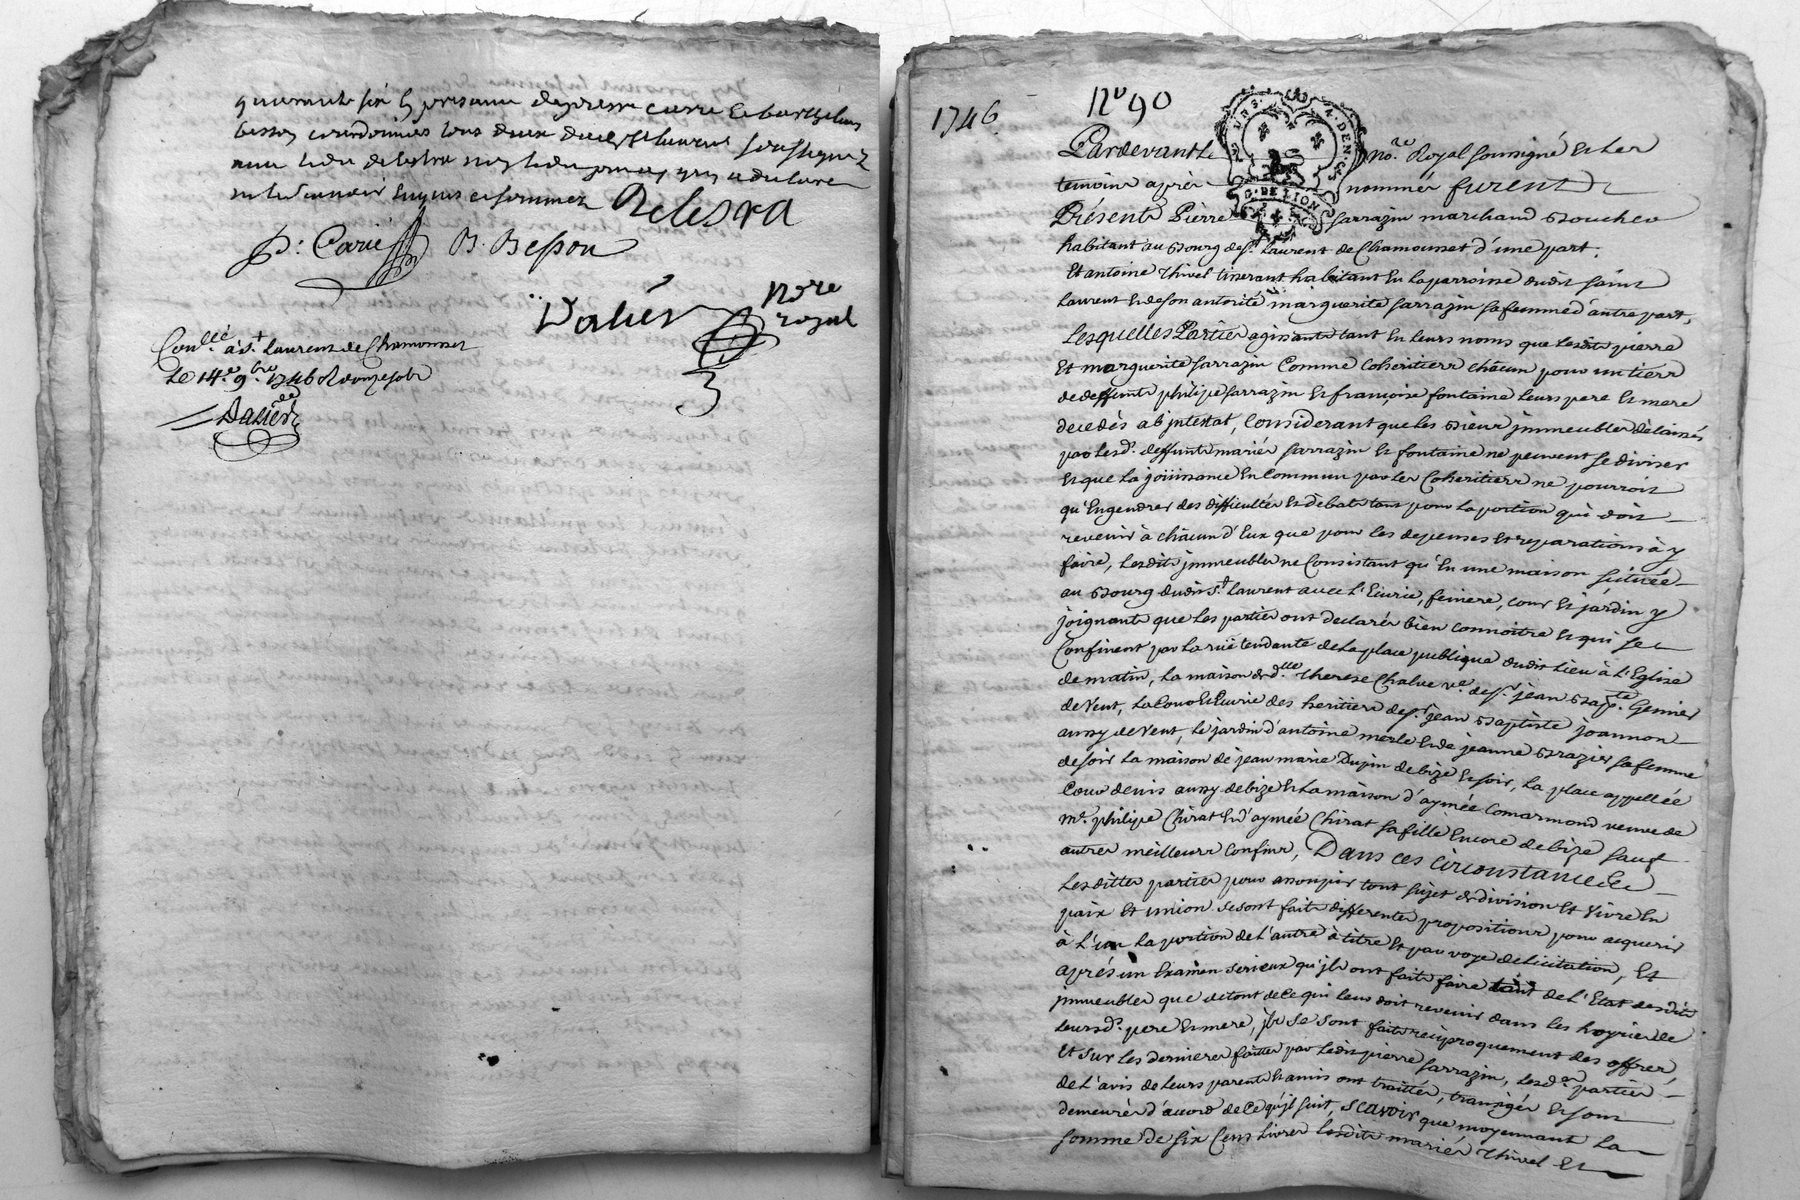 quarante six En presence de pierre carrie et barthelemy
besson cordonniers tous deux dud St Laurent soussignez
avec led Delestra non led
ne le scavoir Enquis et sommez Delestra
P: Carrie B. Besson
Dalier No.re royal
Con.llé à S.t Laurent de Chamousset
Le 14.e 9.bre 1746 R douze sols
Dalier
1746
N.o 90
GEN. DE LION
Pardevant Le no.re Royal soussigné et les
temoins après nommés furent
Présents Pierre sarrazin marchand Boucher
habitant au Bourg de S.t Laurent de Chamousset d'une part.
Et antoine Thivel tisserant habitant En la parroisse dudit saint
Laurent et de son autorité marguerite sarrazin sa femme d'autre part,
Lesquelles Parties agissants tant En leurs noms que Lesdits pierre
Et marguerite sarrazin Comme Coheritiers chacun pour un tiers
de deffunts philipe sarrazin Et françoise fontaine Leurs pere Et mere
decedés ab jntestat, Considerant que Les Biens jmmeubles délaissés
par Lesd. deffunts mariés sarrazin Et fontaine ne peuvent se diviser
Et que La joüissance En Commun par Les Coheritiers ne pourroit
qu'Engendrer des difficultés Et débats tant pour La portion qui doit
revenir à chacun d'Eux que pour Les depenses Et reparations à y
faire, Lesdits jmmeubles ne Consistant qu'En une maison sitüée
au Bourg dudit S.t Laurent avec L'Ecurie, feniere, cour Et jardin y
joignants que Les parties ont declarés bien connoitre Et qui se
Confinent par La rüe tendante de La place publique dudit Lieu à L'Eglise
de matin, La maison de d.lle Therese Chalve v.e de S.r jean Bap.te Genier
de Vent, La Cour Et Ecurie des heritiers de S.r jean Baptiste joannon
aussy de Vent, Le jardin d'antoine merle Et de jeanne Brazier sa femme
de soir La maison de jean marie Dupin de bize Et soir, La place appellée
Cour denis aussy de bize Et La maison d'aymée Comarmond veuve de
m.e philipe Chirat Et d'aymée Chirat sa fille Encore de bize sauf
autres meilleurs Confins, Dans ces circonstances
Lesdittes parties pour assoupir tout sujet de division Et Vivre En
paix Et union se sont faits differentes propositions pour acquerir
à L'un La portion de L'autre à titre Et par voye de licitation, Et
après un Examen serieux qu'jls ont faits faire tant de L'Etat desdits
jmmeubles que de tout de ce qui Leur doit revenir dans Les hoyries de
Leursd. pere Et mere, jls se sont faits reciproquement des offres,
Et sur Les dernieres faittes par Ledit pierre sarrazin, Lesd. parties
de L'avis de Leurs parents Et amis ont traittés, transigés Et sont
demeurés d'accord de Ce qu'jl suit, Scavoir que moyennant La
somme de six Cens Livres Lesdits mariés Thivel Et